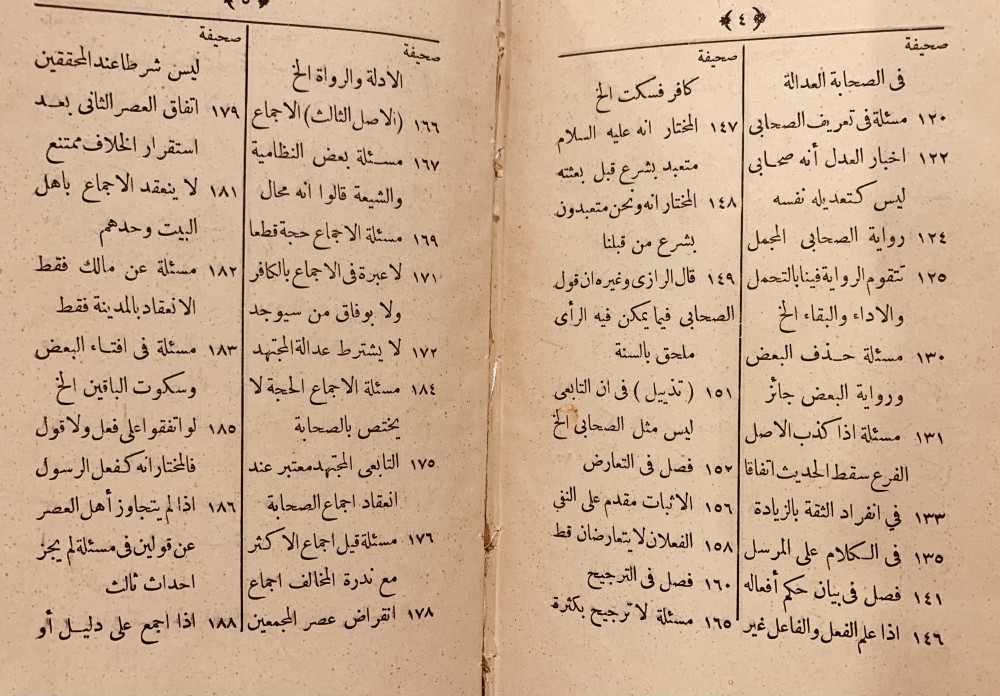 ﴿٤﴾
صحيفة
فى الصحابة العدالة
١٢٠ مسئلة فى تعريف الصحابى
١٢٢ اخبار العدل أنه صحابى
ليس كتعديله نفسه
١٢٤ رواية الصحابى المجمل
١٢٥ تتقوم الرواية فينا بالتحمل
والاداء والبقاء الخ
١٣٠ مسئلة حذف البعض
ورواية البعض جائز
١٣١ مسئلة اذا كذب الاصل
الفرع سقط الحديث اتفاقا
١٣٣ في انفراد الثقة بالزيادة
١٣٥ فى الكلام على المرسل
١٤١ فصل فى بيان حكم أفعاله
١٤٦ اذا علم الفعل والفاعل غير
صحيفة
كافر فسكت الخ
١٤٧ المختار انه عليه السلام
متعبد بشرع قبل بعثته
١٤٨ المختار انه ونحن متعبدون
بشرع من قبلنا
١٤٩ قال الرازى وغيره ان قول
الصحابى فيما يمكن فيه الرأى
ملحق بالسنة
١٥١ (تذييل) فى ان التابعى
ليس مثل الصحابى الخ
١٥٢ فصل فى التعارض
١٥٦ الاثبات مقدم على النفى
١٥٨ الفعلان لا يتعارضان قط
١٦٠ فصل فى الترجيح
١٦٥ مسئلة لا ترجيح بكثرة
﴿٥﴾
صحيفة
الادلة والرواة الخ
١٦٦ (الاصل الثالث) الاجماع
١٦٧ مسئلة بعض النظامية
والشيعة قالوا انه محال
١٦٩ مسئلة الاجماع حجة قطعا
١٧١ لا عبرة فى الاجماع بالكافر
ولا بوفاق من سيوجد
١٧٢ لا يشترط عدالة المجتهد
١٨٤ مسئلة الاجماع الحجة لا
يختص بالصحابة
١٧٥ التابعى المجتهد معتبر عند
انعقاد اجماع الصحابة
١٧٦ مسئلة قيل اجماع الاكثر
مع ندرة المخالف اجماع
١٧٨ انقراض عصر المجمعين
صحيفة
ليس شرطا عند المحققين
١٧٩ اتفاق العصر الثانى بعد
استقرار الخلاف ممتنع
١٨١ لا ينعقد الاجماع باهل
البيت وحدهم
١٨٢ مسئلة عن مالك فقط
الانعقاد بالمدينة فقط
١٨٣ مسئلة فى افتاء البعض
وسكوت الباقين الخ
١٨٥ لو اتفقوا على فعل ولا قول
فالمختار انه كفعل الرسول
١٨٦ اذا لم يتجاوز أهل العصر
عن قولين فى مسئلة لم يجز
احداث ثالث
١٨٨ اذا اجمع على دليل أو